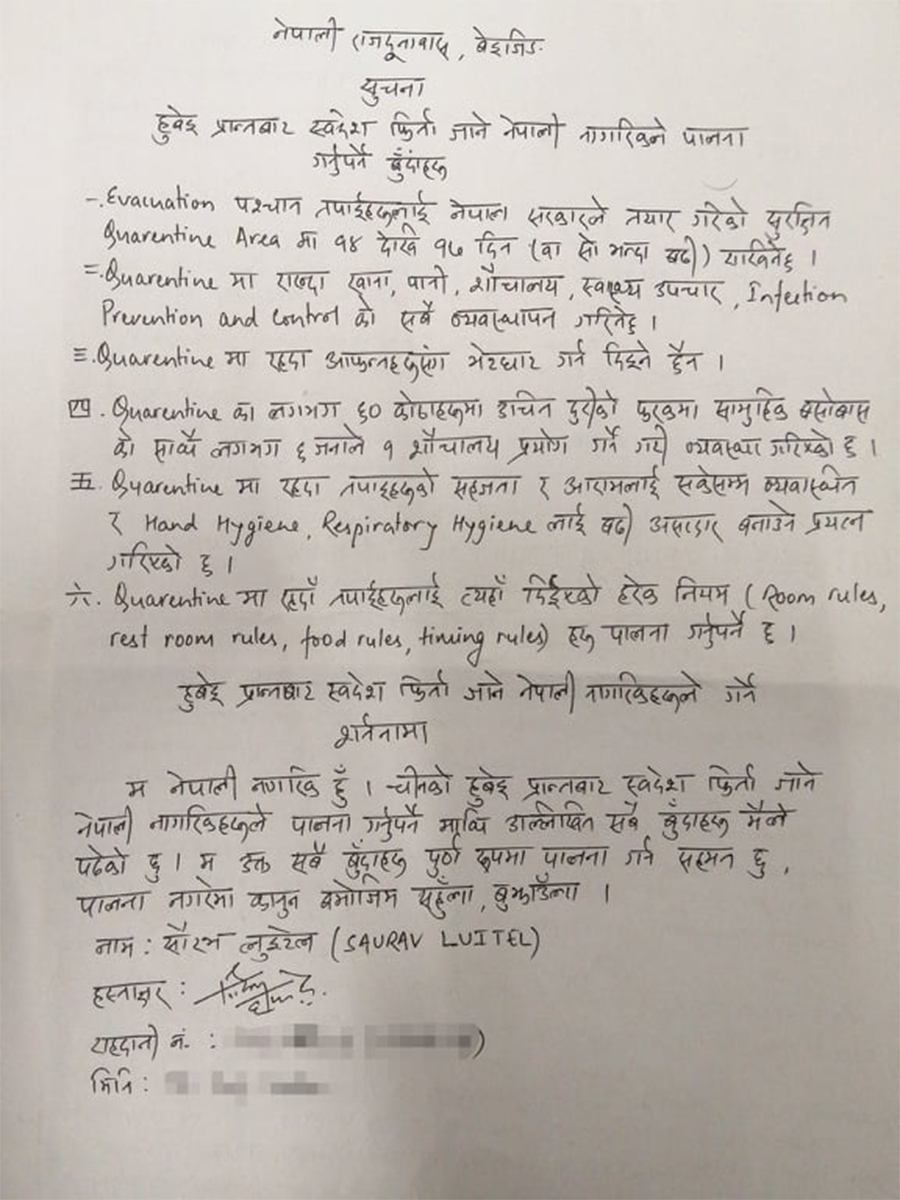 नेपाली राजदूतावास, बेइजिङ
सुचना
हुबेइ प्रान्तबाट स्वदेश फिर्ता जाने नेपाली नागरिकले पालना
गर्नुपर्ने बुँदाहरु
一. Evacuation पश्चात तपाईहरुलाई नेपाल सरकारले तयार गरेको सुरक्षित
Quarentine Area मा १४ देखि १७ दिन (वा सो भन्दा बढी) राखिनेछ ।
二. Quarentine मा राख्दा खाना, पानी, शौचालय, स्वास्थ्य उपचार, Infection
Prevention and Control को सबै व्यवस्थापन गरिनेछ ।
三. Quarentine मा रहदा आफन्तहरुसंग भेटघाट गर्न दिइने छैन ।
四. Quarentine का लगभग ६० कोठाहरुमा उचित दुरीको फरकमा सामुहिक बसोबास
को साथै लगभग ६ जनाले १ शौचालय प्रयोग गर्ने गरी व्यवस्था गरिएको छ ।
五. Quarentine मा रहदा तपाइहरुको सहजता र आरामलाई सकेसम्म व्यवस्थित
र Hand Hygiene, Respiratory Hygiene लाई बढी असरदार बनाउने प्रयत्न
गरिएको छ ।
六. Quarentine मा रहदाँ तपाईहरुलाई त्यहाँ दिईएको हरेक नियम (Room rules,
rest room rules, food rules, timing rules) हरु पालना गर्नुपर्ने छ ।
हुबेइ प्रान्तबाट स्वदेश फिर्ता जाने नेपाली नागरिकहरुले गर्ने
शर्तनामा
म नेपाली नागरिक हुँ । चीनको हुबेइ प्रान्तबाट स्वदेश फिर्ता जाने
नेपाली नागरिकहरुले पालना गर्नुपर्ने माथि उल्लिखित सबै बुँदाहरु मैले
पढेको छु । म उक्त सबै बुँदाहरु पुर्ण रुपमा पालना गर्न सहमत छु,
पालना नगरेमा कानुन बमोजिम सहुँला, बुझाउँला ।
नाम : सौरभ लुइटेल (SAURAV LUITEL)
हस्ताक्षर :
राहदानी नं. : )
मिति :